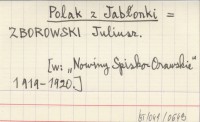 Polak z Jabłonki =
ZBOROWSKI Juliusz.
[w: „Nowiny Spisko-Orawskie”
1919-1920.]